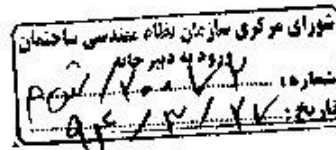 شورای مرکزی سازمان نظام مهندسی ساختمان
ورود به دبیرخانه
شماره:
تاریخ: ۹۴/۳/۲۷